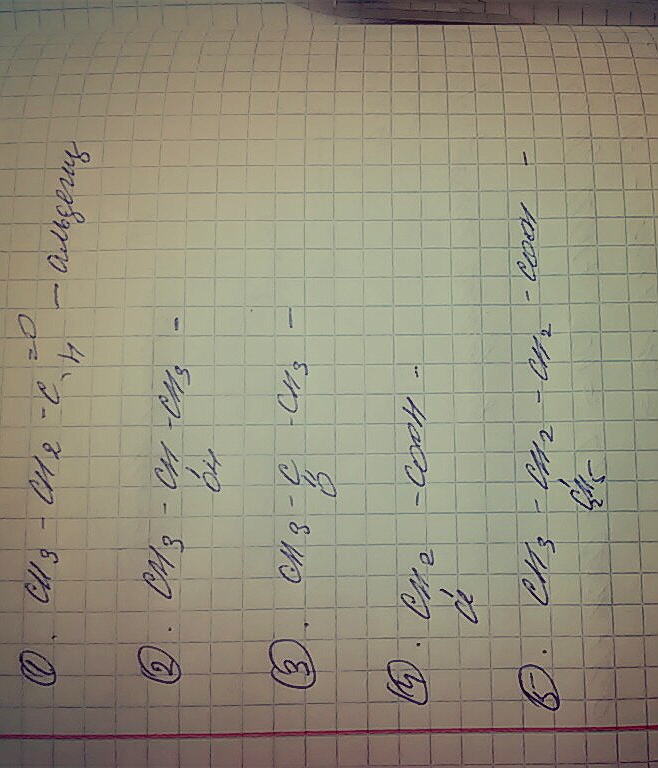 ① . CH3 - CH2 - C =O
\ H — альдегид
② . CH3 - CH - CH3 -
OH
③ . CH3 - C - CH3 -
O
④ . CH2 - COOH -
Cl
⑤ . CH3 - CH2 - CH2 - COOH -